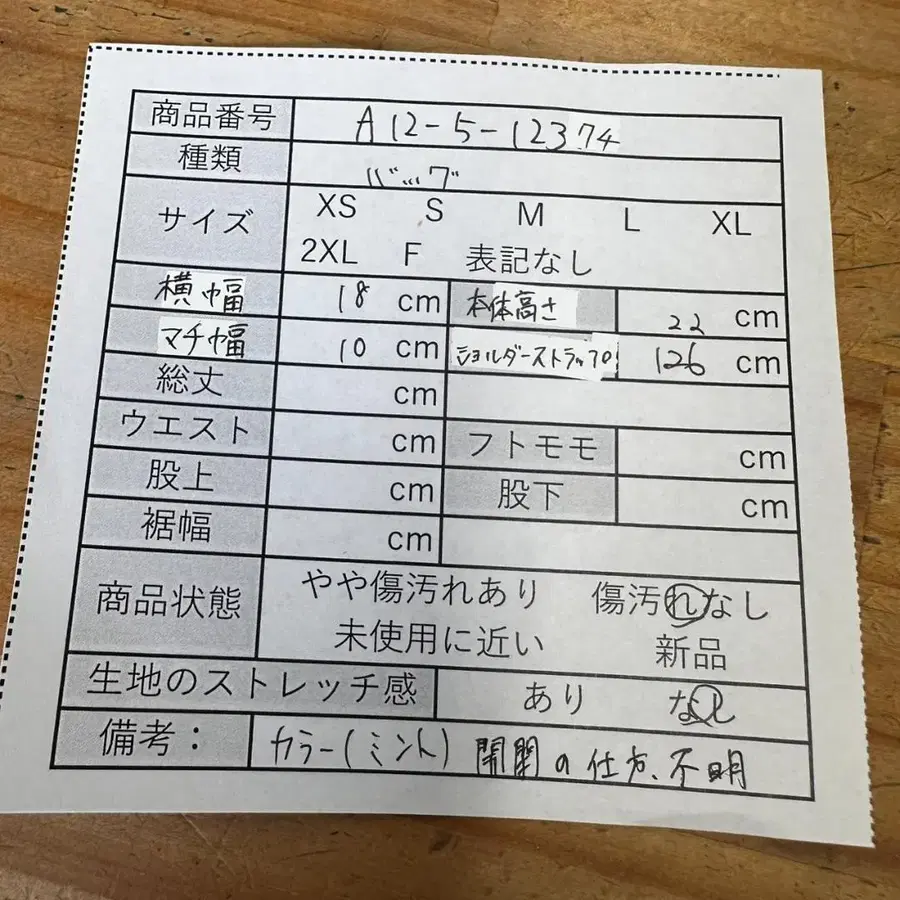 商品番号 A12-5-12374
種類 バッグ
サイズ XS S M L XL
2XL F 表記なし
横幅 18 cm 本体高さ 22 cm
マチ幅 10 cm ショルダーストラップ 126 cm
総丈 cm
ウエスト cm フトモモ cm
股上 cm 股下 cm
裾幅 cm
商品状態 やや傷汚れあり 傷汚れなし
未使用に近い 新品
生地のストレッチ感 あり なし
備考： カラー(ミント) 開閉の仕方、不明